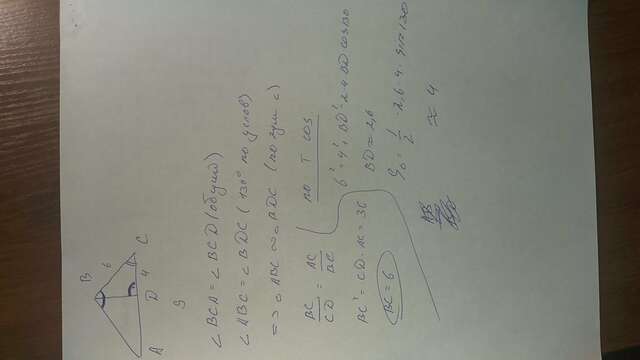 B
6
A D 4 C
9
∠BCA = ∠BCD (общий)
∠ABC = ∠BDC (130° по услов)
=> ABC ∾ BDC (по
BC/CD = AC/BC
BC² = CD · AC = 36
BC = 6
по Т cos
6² = 4² + BD² - 2·4·BD cos 130
BD ≈ 2,6
S₀ = 1/2 · 2,6 · 4 · sin 130
≈ 4